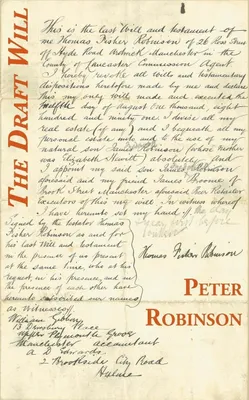 THE DRAFT WILL
This is the last Will and testament of
me Thomas Fisher Robinson of 26
Hyde Road Ardwick Manchester in the
County of Lancaster Commission Agent
I hereby revoke all wills and testamentary
dispositions heretofore made by me and declare
my only will made and executed the
twelfth day of august One thousand eight
hundred and ninety one I devise all my
real estate (if any) and I bequeath all my
personal estate unto and to the use of my
natural son James Robinson (whose mother
was Elizabeth) absolutely And
I appoint my said son James Robinson
aforesaid and my friend James Broome of
Brook Street Manchester aforesaid
Executors of this my will In witness whereof
I have hereunto set my hand
Signed by the testator Thomas
Fisher Robinson as and for
his last Will and testament
in the presence of us present
at the same time, who at his
request in his presence, and in
the presence of each other have
hereunto subscribed our names
as witnesses
Thomas Fisher Robinson
William
13 Place
Plymouth Grove
Manchester accountant
A D Edwards
2 Brookside City Road
Hulme
PETER
ROBINSON